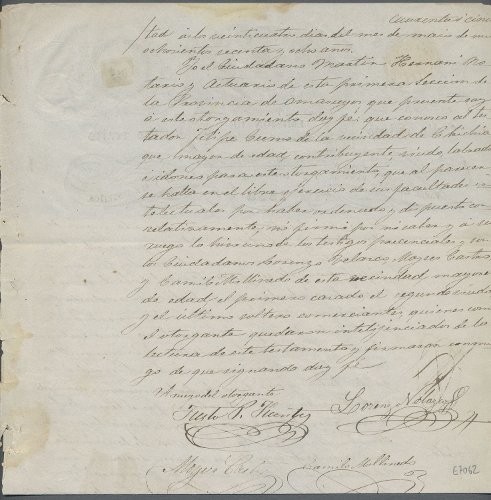 Cuarenta i cinco
dad á los veinticuatro dias del mes de marzo de mil
ochocientos setenta y ocho años.
Yo el Ciudadano Martin Hernani No-
tario y Actuario de esta primera Seccion de
la Provincia de que presente soy
á este otorgamiento, doy fé: que conosco al tes-
tador Felipe de la vecindad de
que, mayor de edad, contribuyente, viudo, labrador
é idoneo para este otorgamiento, que al parecer
se halla en el libre ejercicio de sus facultades in-
telectuales por haber ordenado y dispuesto co-
relativamente, no firmó por no saber y á su
ruego lo hicieron los testigos presenciales, que son
los Ciudadanos Lorenzo Moyses Castro
y Camilo Maldonado de esta vecindad mayores
de edad el primero casado el segundo viudo
y el último soltero comerciantes, quienes con el
otorgante quedaron inteligenciados de la
lectura de este testamento y firmaron conmi-
go de que signando doy fé
A ruego del otorgante
Lorenzo
Moyses Castro Camilo Maldonado
E7062